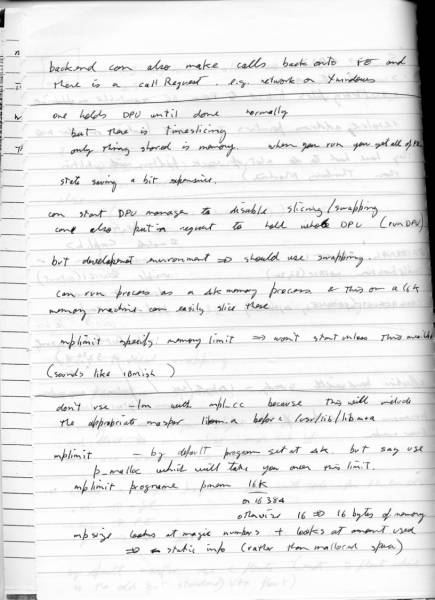 backend can also make calls back onto FE and
there is a callRequest. e.g. network or Xwindows
one holds DPU until done normally
but there is timeslicing
only thing stored is memory. when you run you get all of PE
state saving a bit expensive.
can start DPU manager to disable slicing/swapping
can also put in request to hold whole DPU (runDPU)
but development environment ⇒ should use swapping.
can run process as a 4k memory process & this on a 16k
memory machine can easily slice these
mplimit specify memory limit ⇒ won't start unless this available
(sounds like ibmish)
don't use -lm with mpl_cc because this will include
the appropriate maspar libm.a before /usr/lib/libm.a
mplimit - by default program set at 4k but say use
p_malloc which will take you over this limit.
mplimit programe pmem 16k
or 16384
otherwise 16 ⇒ 16 bytes of memory
mpsize looks at magic numbers + looks at amount used
⇒ static info (rather than malloced space)